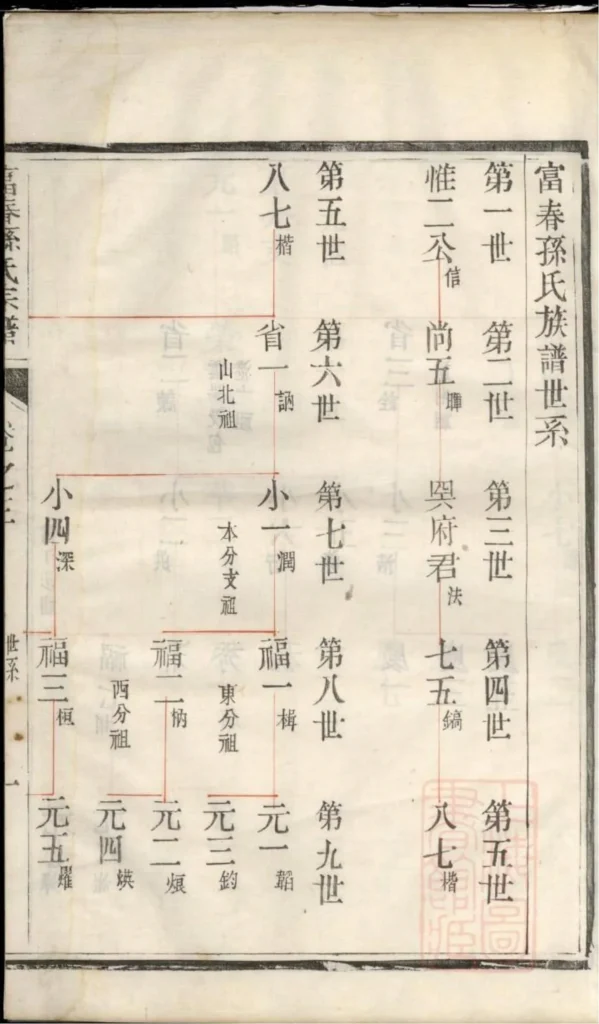 富春孫氏族譜世系
第一世 第二世 第三世 第四世 第五世
惟二公信 尚五 吳府君法 七五鎬 八七楷
第五世 第六世 第七世 第八世 第九世
八七楷 省一訥 小一潤 福一楫 元一韜
山北祖 本分支祖 東分祖 元三鈞
福二 元二
西分祖 元四煐
小四深 福三桓 元五
富春孫氏族譜
卷之
世系 一